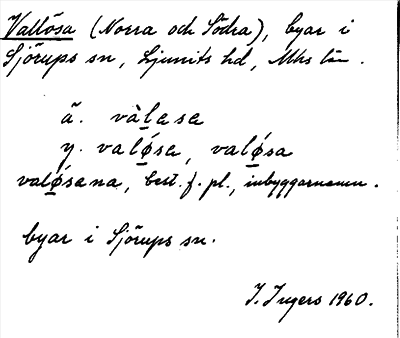 Vallösa (Norra och Södra), byar i
Sjörups sn, Ljunits hd, Mhs län.
ä. vàlasa
y. valǿsa, valǿsa
valǿsana, best. f. pl., inbyggarnamn.
byar i Sjörups sn.
I. Ingers 1960.